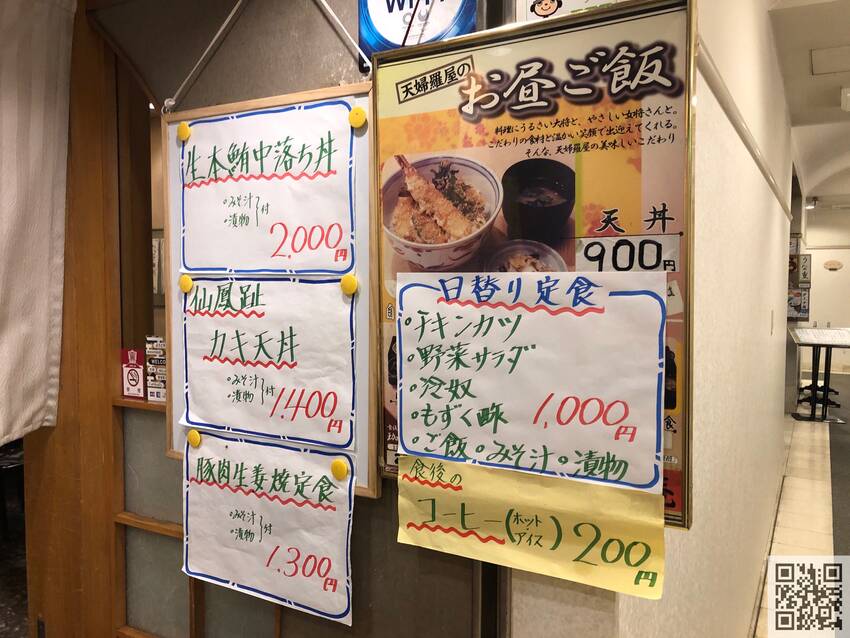 Wi-Fi
生本鮪中落ち丼
・みそ汁
・漬物
付
2,000円
仙鳳趾
カキ天丼
・みそ汁
・漬物
付
1,400円
豚肉生姜焼定食
・みそ汁
・漬物
付
1,300円
天婦羅屋の
お昼ご飯
料理にうるさい大将と、やさしい女将さんと。
こだわりの食材と温かい笑顔で出迎えてくれる。
そんな、天婦羅屋の美味しいこだわり
天丼
900円
日替り定食
・チキンカツ
・野菜サラダ
・冷奴
・もずく酢
・ご飯・みそ汁・漬物
1,000円
食後の
コーヒー(ホット・アイス)200円
WELCOME